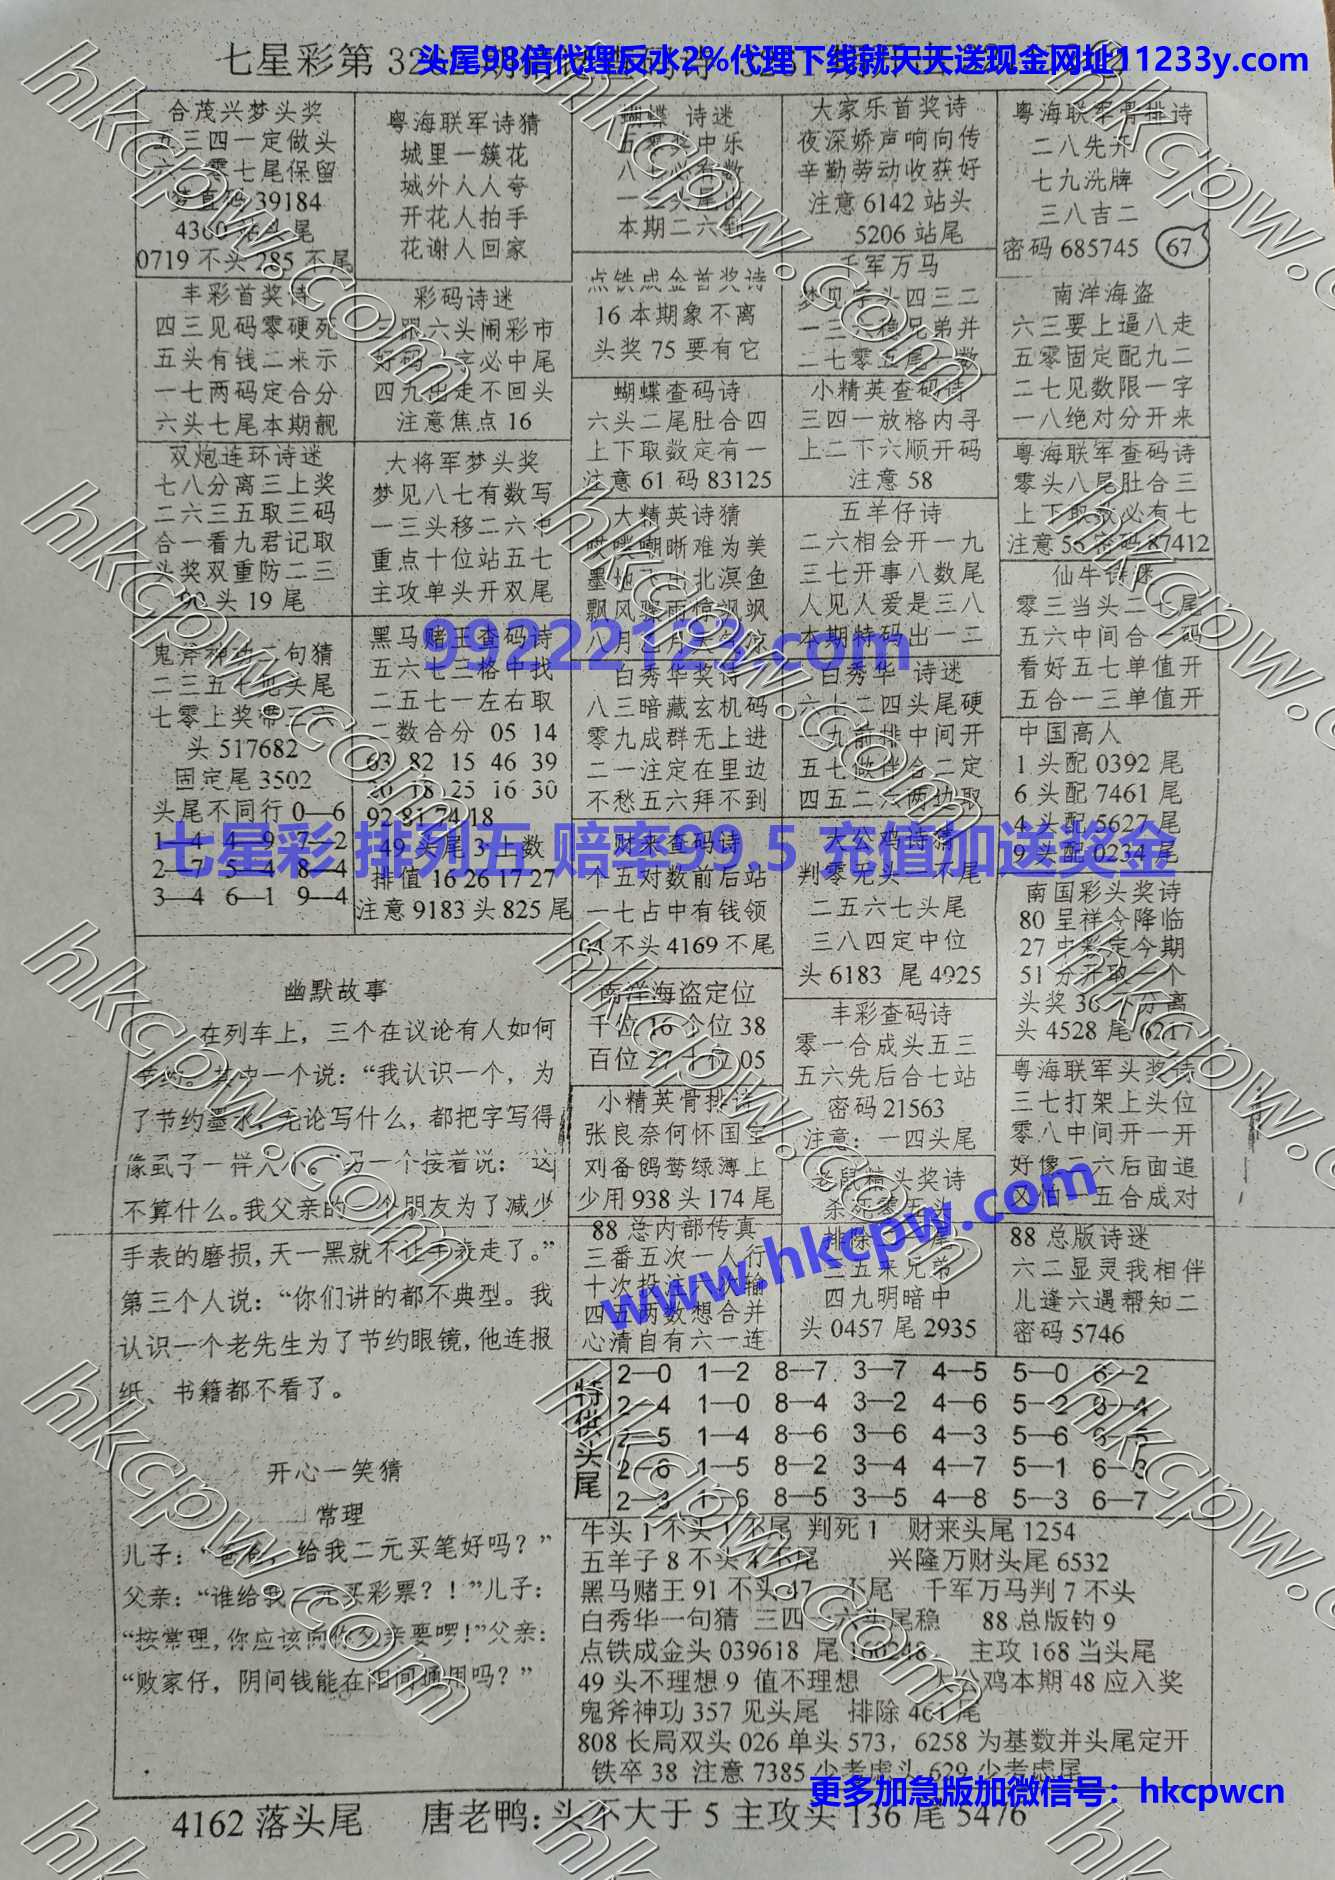 七星彩第32
头尾98倍代理反水2%代理下线就天天送现金网址11233y.com
合茂兴梦头奖
三四一定做头
零七尾保留
39184
4360 站头尾
0719 不头 285 不尾
粤海联军诗猜
城里一簇花
城外人人夸
开花人拍手
花谢人回家
蝴蝶 诗迷
本期二六到
大家乐首奖诗
夜深娇声响向传
辛勤劳动收获好
注意 6142 站头
5206 站尾
粤海联军骨排诗
二八先开
七九洗牌
三八吉二
密码 685745 67
丰彩首奖诗
四三见码零硬死
五头有钱二来示
一七两码定合分
六头七尾本期靓
彩码诗迷
六头闹彩市
必中尾
四九出走不回头
注意焦点 16
点铁成金首奖诗
16 本期象不离
头奖 75 要有它
千军万马
梦见字头四三二
一三六稳兄弟并
二七零五尾一数
南洋海盗
六三要上逼八走
五零固定配九二
二七见数限一字
一八绝对分开来
蝴蝶查码诗
六头二尾肚合四
上下取数定有一
注意 61 码 83125
小精英查码诗
三四一放格内寻
上二下六顺开码
注意 58
双炮连环诗迷
七八分离三上奖
二六三五取三码
合一看九君记取
头奖双重防二三
90 头 19 尾
大将军梦头奖
梦见八七有数写
一三头移二六中
重点十位站五七
主攻单头开双尾
粤海联军查码诗
零头八尾肚合三
上下取数必有七
注意 56 密码 87412
大精英诗猜
哎噗嘲晰难为美
墨地飞出北溟鱼
飘风骤雨惊飒飒
五羊仔诗
二六相会开一九
三七开事八数尾
人见人爱是三八
本期特码出一三
仙牛诗迷
零三当头二七尾
五六中间合一码
看好五七单值开
五合一三单值开
99222123.com
鬼斧神功一句猜
二三五七见头尾
七零上奖带三六
头 517682
固定尾 3502
头尾不同行 0—6
1—4 4—9 7—2
2—7 5—4 8—4
3—4 6—1 9—4
黑马赌王查码诗
五六七三格中找
二五七一左右取
二数合分 05 14
63 82 15 46 39
20 18 25 16 30
92 81 74 18
49 头尾 3 上数
排值 16 26 17 27
注意 9183 头 825 尾
白秀华奖诗
八三暗藏玄机码
零九成群无上进
二一注定在里边
不愁五六拜不到
白秀华 诗迷
六七二四头尾硬
九前排中间开
五七做伴合二定
四五二六两边取
中国高人
1 头配 0392 尾
6 头配 7461 尾
4 头配 5627 尾
9 头配 0234 尾
七星彩 排列五 赔率99.5 充值加送奖金
财来查码诗
个五对数前后站
一七占中有钱领
104 不头 4169 不尾
大公鸡诗猜
判零无头一不尾
二五六七头尾
三八四定中位
头 6183 尾 4925
南国彩头奖诗
80 呈祥今降临
27 中彩定今期
51 分开取一个
头奖 36 不分离
头 4528 尾 6217
南洋海盗定位
千位 16 个位 38
百位 27 十位 05
丰彩查码诗
零一合成头五三
五六先后合七站
密码 21563
注意：一四头尾
小精英骨排诗
张良奈何怀国宝
刘备鸽莺绿薄上
少用 938 头 174 尾
粤海联军头奖诗
三七打架上头位
零八中间开一开
好像二六后面追
又怕一五合成对
老鼠精头奖诗
杀死零无头
排除
二五来兄弟
四九明暗中
头 0457 尾 2935
88 总内部传真
三番五次一人行
十次投注六次输
四五两数想合并
心清自有六一连
88 总版诗迷
六二显灵我相伴
儿逢六遇帮知二
密码 5746
www.hkcpw.com
幽默故事
在列车上，三个在议论有人如何
节约。其中一个说：“我认识一个，为
了节约墨水，无论写什么，都把字写得
像虱子一样大小。”另一个接着说：“这
不算什么。我父亲的一个朋友为了减少
手表的磨损，天一黑就不让手表走了。”
第三个人说：“你们讲的都不典型。我
认识一个老先生为了节约眼镜，他连报
纸、书籍都不看了。
开心一笑猜
常理
儿子：“爸爸，给我二元买笔好吗？”
父亲：“谁给我二元买彩票？！”儿子：
“按常理，你应该向你父亲要啰！”父亲：
“败家仔，阴间钱能在阳间通用吗？”
特供头尾
2—0 1—2 8—7 3—7 4—5 5—0 6—2
2—4 1—0 8—4 3—2 4—6 5—2 6—4
2—5 1—4 8—6 3—6 4—3 5—6 6—5
2—6 1—5 8—2 3—4 4—7 5—1 6—3
2—3 1—6 8—5 3—5 4—8 5—3 6—7
牛头 1 不头 1 不尾 判死 1 财来头尾 1254
五羊子 8 不头 4 不尾 兴隆万财头尾 6532
黑马赌王 91 不头 47 不尾 千军万马判 7 不头
白秀华一句猜 三四一六头尾稳 88 总版钓 9
点铁成金头 039618 尾 160248 主攻 168 当头尾
49 头不理想 9 值不理想 大公鸡本期 48 应入奖
鬼斧神功 357 见头尾 排除 461 尾
808 长局双头 026 单头 573，6258 为基数并头尾定开
铁卒 38 注意 7385 少考虑头 629 少考虑尾
更多加急版加微信号：hkcpwcn
4162 落头尾 唐老鸭：头不大于 5 主攻头 136 尾 5476
hkcpw.com